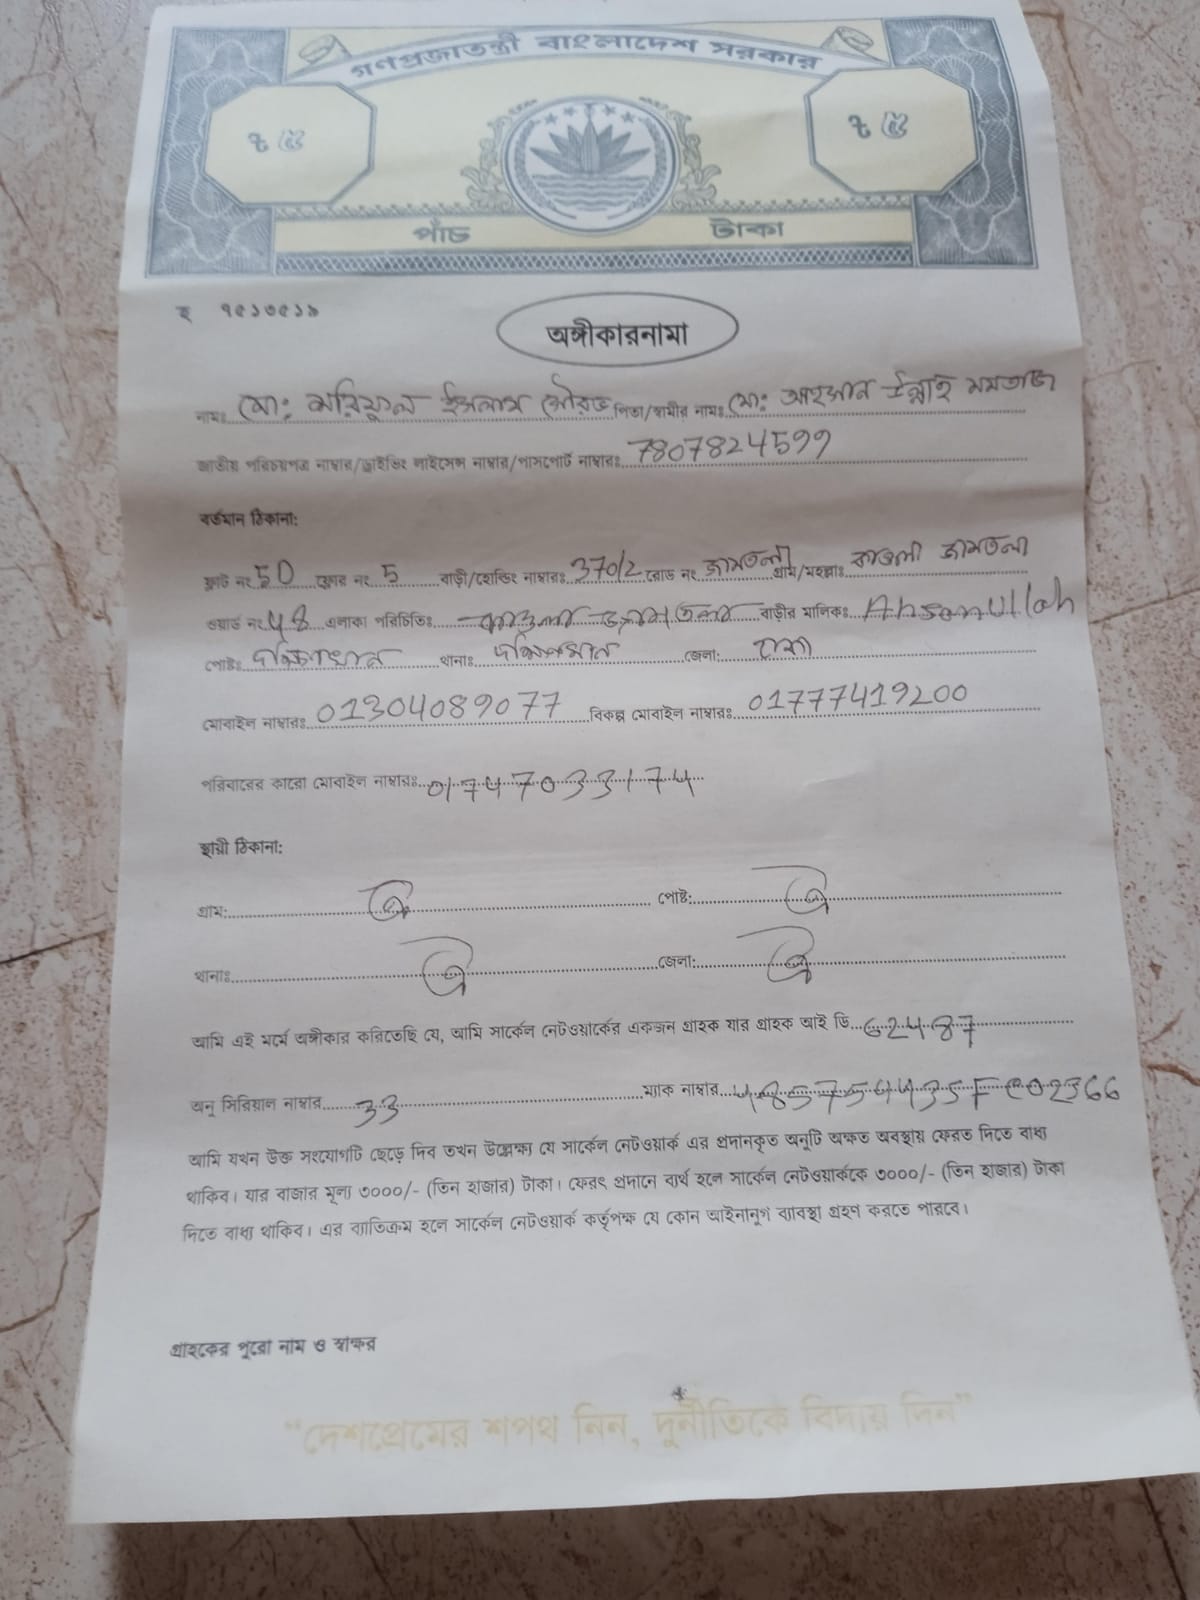 গণপ্রজাতন্ত্রী বাংলাদেশ সরকার
৳ ৫ ৳ ৫
পাঁচ টাকা
হ ৭৫১৩৫১৯
অঙ্গীকারনামা
নামঃ মোঃ ইসলাম সৌরভ পিতা/স্বামীর নামঃ মোঃ আহসান উল্লাহ মমতাজ
জাতীয় পরিচয়পত্র নাম্বার/ড্রাইভিং লাইসেন্স নাম্বার/পাসপোর্ট নাম্বারঃ 7807824599
বর্তমান ঠিকানা:
ফ্লাট নং 5D ফ্লোর নং 5 বাড়ী/হোল্ডিং নাম্বারঃ 370/2 রোড নং জামতলা গ্রাম/মহল্লাঃ কাওলা জামতলা
ওয়ার্ড নং 48 এলাকা পরিচিতিঃ কাওলা জামতলা বাড়ীর মালিকঃ Ahsanullah
পোষ্টঃ দক্ষিণখান থানাঃ দক্ষিণখান জেলা: ঢাকা
মোবাইল নাম্বারঃ 01304089077 বিকল্প মোবাইল নাম্বারঃ 01777419200
পরিবারের কারো মোবাইল নাম্বারঃ 01747033174
স্থায়ী ঠিকানা:
গ্রাম: ঐ পোষ্ট: ঐ
থানাঃ ঐ জেলা: ঐ
আমি এই মর্মে অঙ্গীকার করিতেছি যে, আমি সার্কেল নেটওয়ার্কের একজন গ্রাহক যার গ্রাহক আই ডি 62487
অনু সিরিয়াল নাম্বার 33 ম্যাক নাম্বার
আমি যখন উক্ত সংযোগটি ছেড়ে দিব তখন উল্লেক্ষ্য যে সার্কেল নেটওয়ার্ক এর প্রদানকৃত অনুটি অক্ষত অবস্থায় ফেরত দিতে বাধ্য
থাকিব। যার বাজার মূল্য ৩০০০/- (তিন হাজার) টাকা। ফেরৎ প্রদানে ব্যর্থ হলে সার্কেল নেটওয়ার্ককে ৩০০০/- (তিন হাজার) টাকা
দিতে বাধ্য থাকিব। এর ব্যাতিক্রম হলে সার্কেল নেটওয়ার্ক কর্তৃপক্ষ যে কোন আইনানুগ ব্যাবস্থা গ্রহণ করতে পারবে।
গ্রাহকের পুরো নাম ও স্বাক্ষর
“দেশপ্রেমের শপথ নিন, দুর্নীতিকে বিদায় দিন”